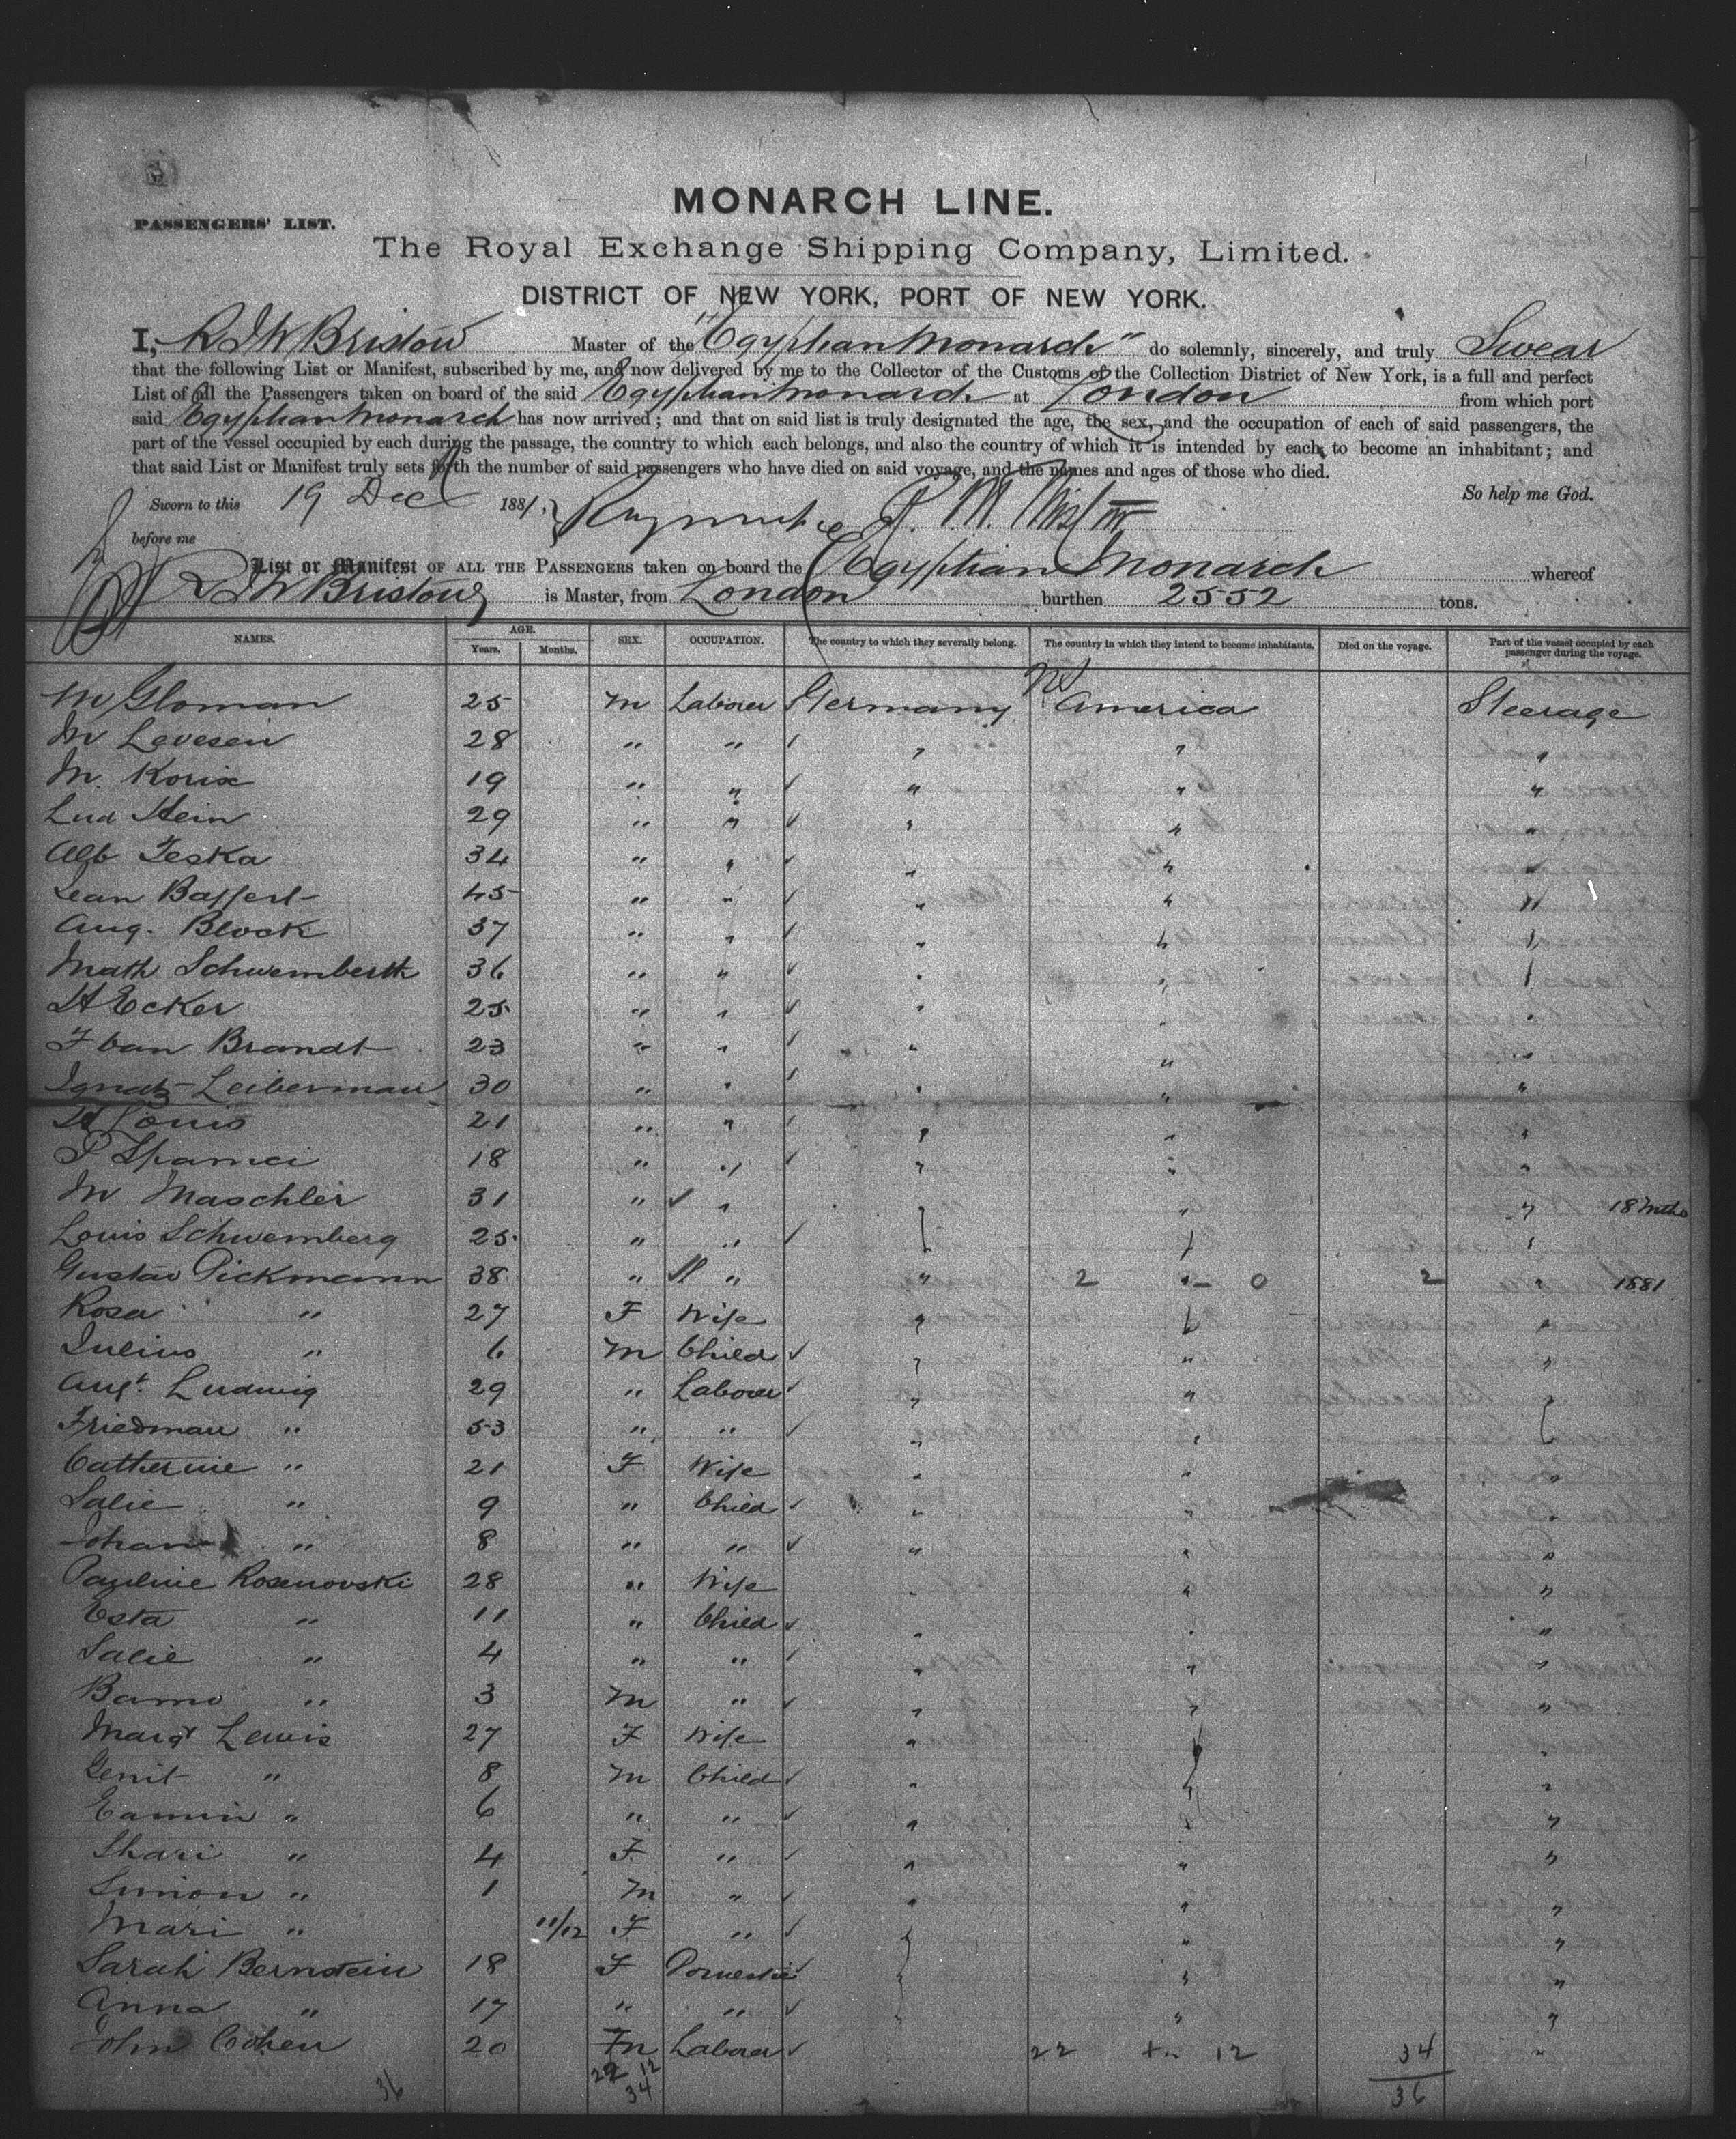 PASSENGERS' LIST.
MONARCH LINE.
The Royal Exchange Shipping Company, Limited.
DISTRICT OF NEW YORK, PORT OF NEW YORK.
I, R J W Bristow Master of the "Egyptian Monarch" do solemnly, sincerely, and truly Swear
that the following List or Manifest, subscribed by me, and now delivered by me to the Collector of the Customs of the Collection District of New York, is a full and perfect
List of all the Passengers taken on board of the said Egyptian Monarch at London from which port
said Egyptian Monarch has now arrived; and that on said list is truly designated the age, the sex, and the occupation of each of said passengers, the
part of the vessel occupied by each during the passage, the country to which each belongs, and also the country of which it is intended by each to become an inhabitant; and
that said List or Manifest truly sets forth the number of said passengers who have died on said voyage, and the names and ages of those who died.
So help me God.
Sworn to this 19 Dec 1881
before me
List or Manifest OF ALL THE PASSENGERS taken on board the Egyptian Monarch whereof
R J W Bristow is Master, from London burthen 2552 tons.
NAMES. AGE. Years. Months. SEX. OCCUPATION. The country to which they severally belong. The country in which they intend to become inhabitants. Died on the voyage. Part of the vessel occupied by each passenger during the voyage.
M Gloman 25 M Laborer Germany America Steerage
M Levesen 28 " " " " "
M. Korix 19 " " " " "
Lud Stein 29 " " " " "
Alb Teska 34 " " " " "
Jean Baffert 45 " " " " "
Aug. Block 37 " " " " "
Math Schwemberth 36 " " " " "
H Ecker 25 " " " " "
Brandt 23 " " " " "
Ignatz Leiberman 30 " " " " "
Louis 21 " " " " "
18 " " " " "
M Maschler 31 " " " " " 18 Mths
Louis Schwemberg 25 " " " " "
Gustav Pickmann 38 " " " 2 " 0 2 " 1881
Rosa " 27 F Wife " " "
Julius " 6 M Child " " "
Augt. Ludwig 29 " Laborer " " "
Friedman " 53 " " " " "
Catherine " 21 F Wife " " "
Salie " 9 " Child " " "
Johan " 8 " " " " "
Pauline Rosenovski 28 " Wife " " "
Esta " 11 " Child " " "
Salie " 4 " " " " "
" 3 M " " " "
Margt Lewis 27 F Wife " " "
Genit " 8 M Child " " "
" 6 " " " " "
Shari " 4 F " " " "
Simon " 1 M " " " "
Mari " 11/12 F " " " "
Sarah Bernstein 18 F Domestic " " "
Anna " 17 " " " " "
John Cohen 20 M Laborer 22 12 34 "
36 22 12 34 36